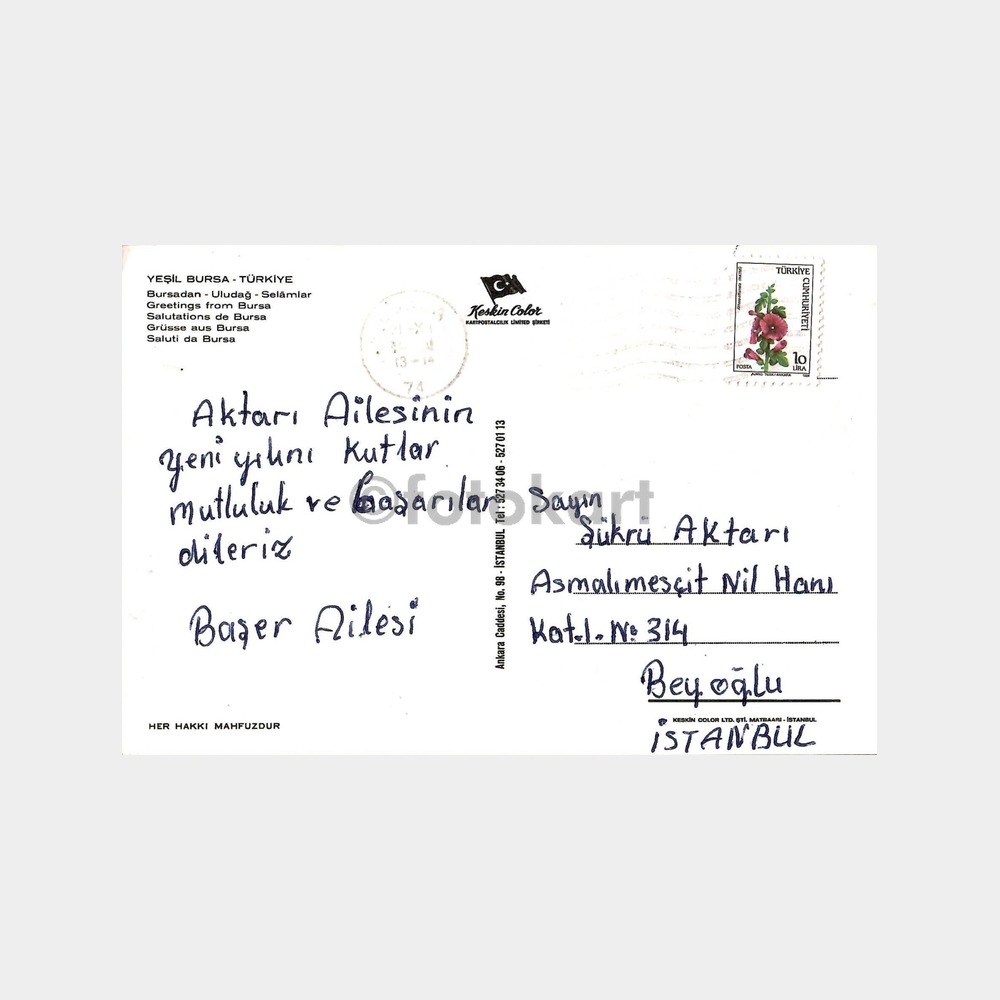 YEŞİL BURSA - TÜRKİYE
Bursadan - Uludağ - Selâmlar
Greetings from Bursa
Salutations de Bursa
Grüsse aus Bursa
Saluti da Bursa
Keskin Color
KARTPOSTALCILIK LİMİTED ŞİRKETİ
13-14
74
TÜRKİYE
CUMHURİYETİ
10
LİRA
POSTA
Aktarı Ailesinin
yeni yılını kutlar
mutluluk ve başarılar
dileriz
Başer Ailesi
©fotokart
Ankara Caddesi, No. 98 - İSTANBUL Tel : 527 34 06 - 527 01 13
Sayın
Şükrü Aktarı
Asmalımesçit Nil Hanı
Kat.1. No 314
Beyoğlu
İSTANBUL
HER HAKKI MAHFUZDUR
KESKİN COLOR LTD. ŞTİ. MATBAASI - İSTANBUL